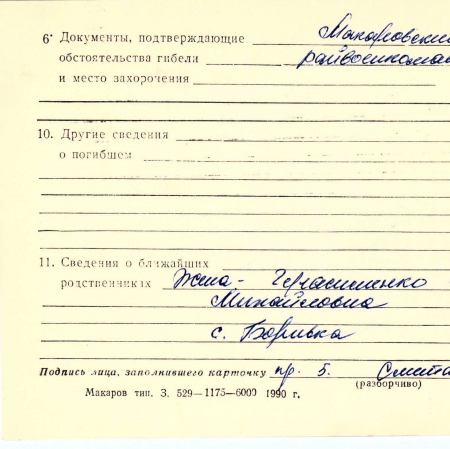 6 Документы, подтверждающие Макаровский
обстоятельства гибели райвоенкомат
и место захоронения
10. Другие сведения
о погибшем
11. Сведения о ближайших
родственниках Жена - Герасименко
Михайловна
с. Боривка
Подпись лица, заполнившего карточку пр. 5.
(разборчиво)
Макаров тип. З. 529—1175—6000 1990 г.